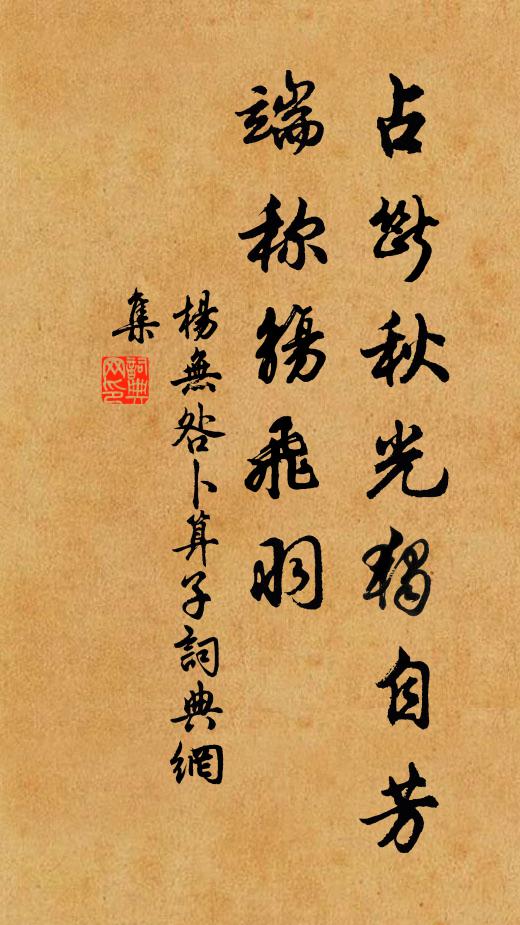 占断秋光獨自芳
端称觴飛羽
楊無咎卜算子詞典網
集
詞典
网印